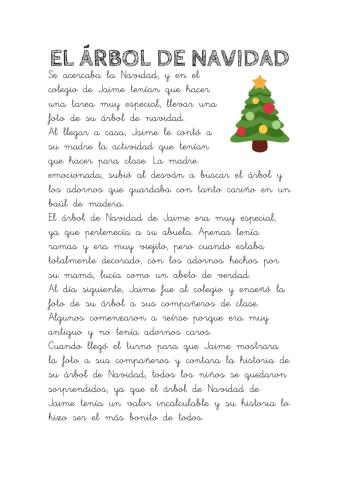 EL ÁRBOL DE NAVIDAD
Se acercaba la Navidad, y en el
colegio de Jaime tenían que hacer
una tarea muy especial, llevar una
foto de su árbol de navidad.
Al llegar a casa, Jaime le contó a
su madre la actividad que tenían
que hacer para clase. La madre
emocionada, subió al desván a buscar el árbol y
los adornos que guardaba con tanto cariño en un
baúl de madera.
El árbol de Navidad de Jaime era muy especial,
ya que pertenecía a su abuela. Apenas tenía
ramas y era muy viejito, pero cuando estaba
totalmente decorado, con los adornos hechos por
su mamá, lucía como un abeto de verdad.
Al día siguiente, Jaime fue al colegio y enseñó la
foto de su árbol a sus compañeros de clase.
Algunos comenzaron a reírse porque era muy
antiguo y no tenía adornos caros.
Cuando llegó el turno para que Jaime mostrara
la foto a sus compañeros y contara la historia de
su árbol de Navidad, todos los niños se quedaron
sorprendidos, ya que el árbol de Navidad de
Jaime tenía un valor incalculable y su historia lo
hizo ser el más bonito de todos.